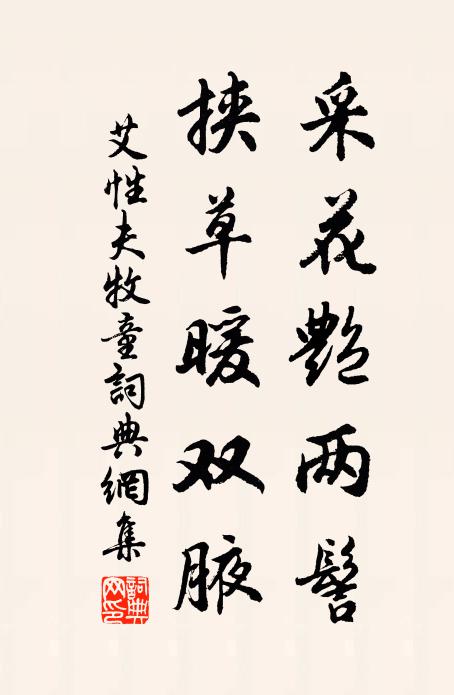 采花艶两髻
挟草暖双腋
艾性夫牧童詞典網集
詞典网印